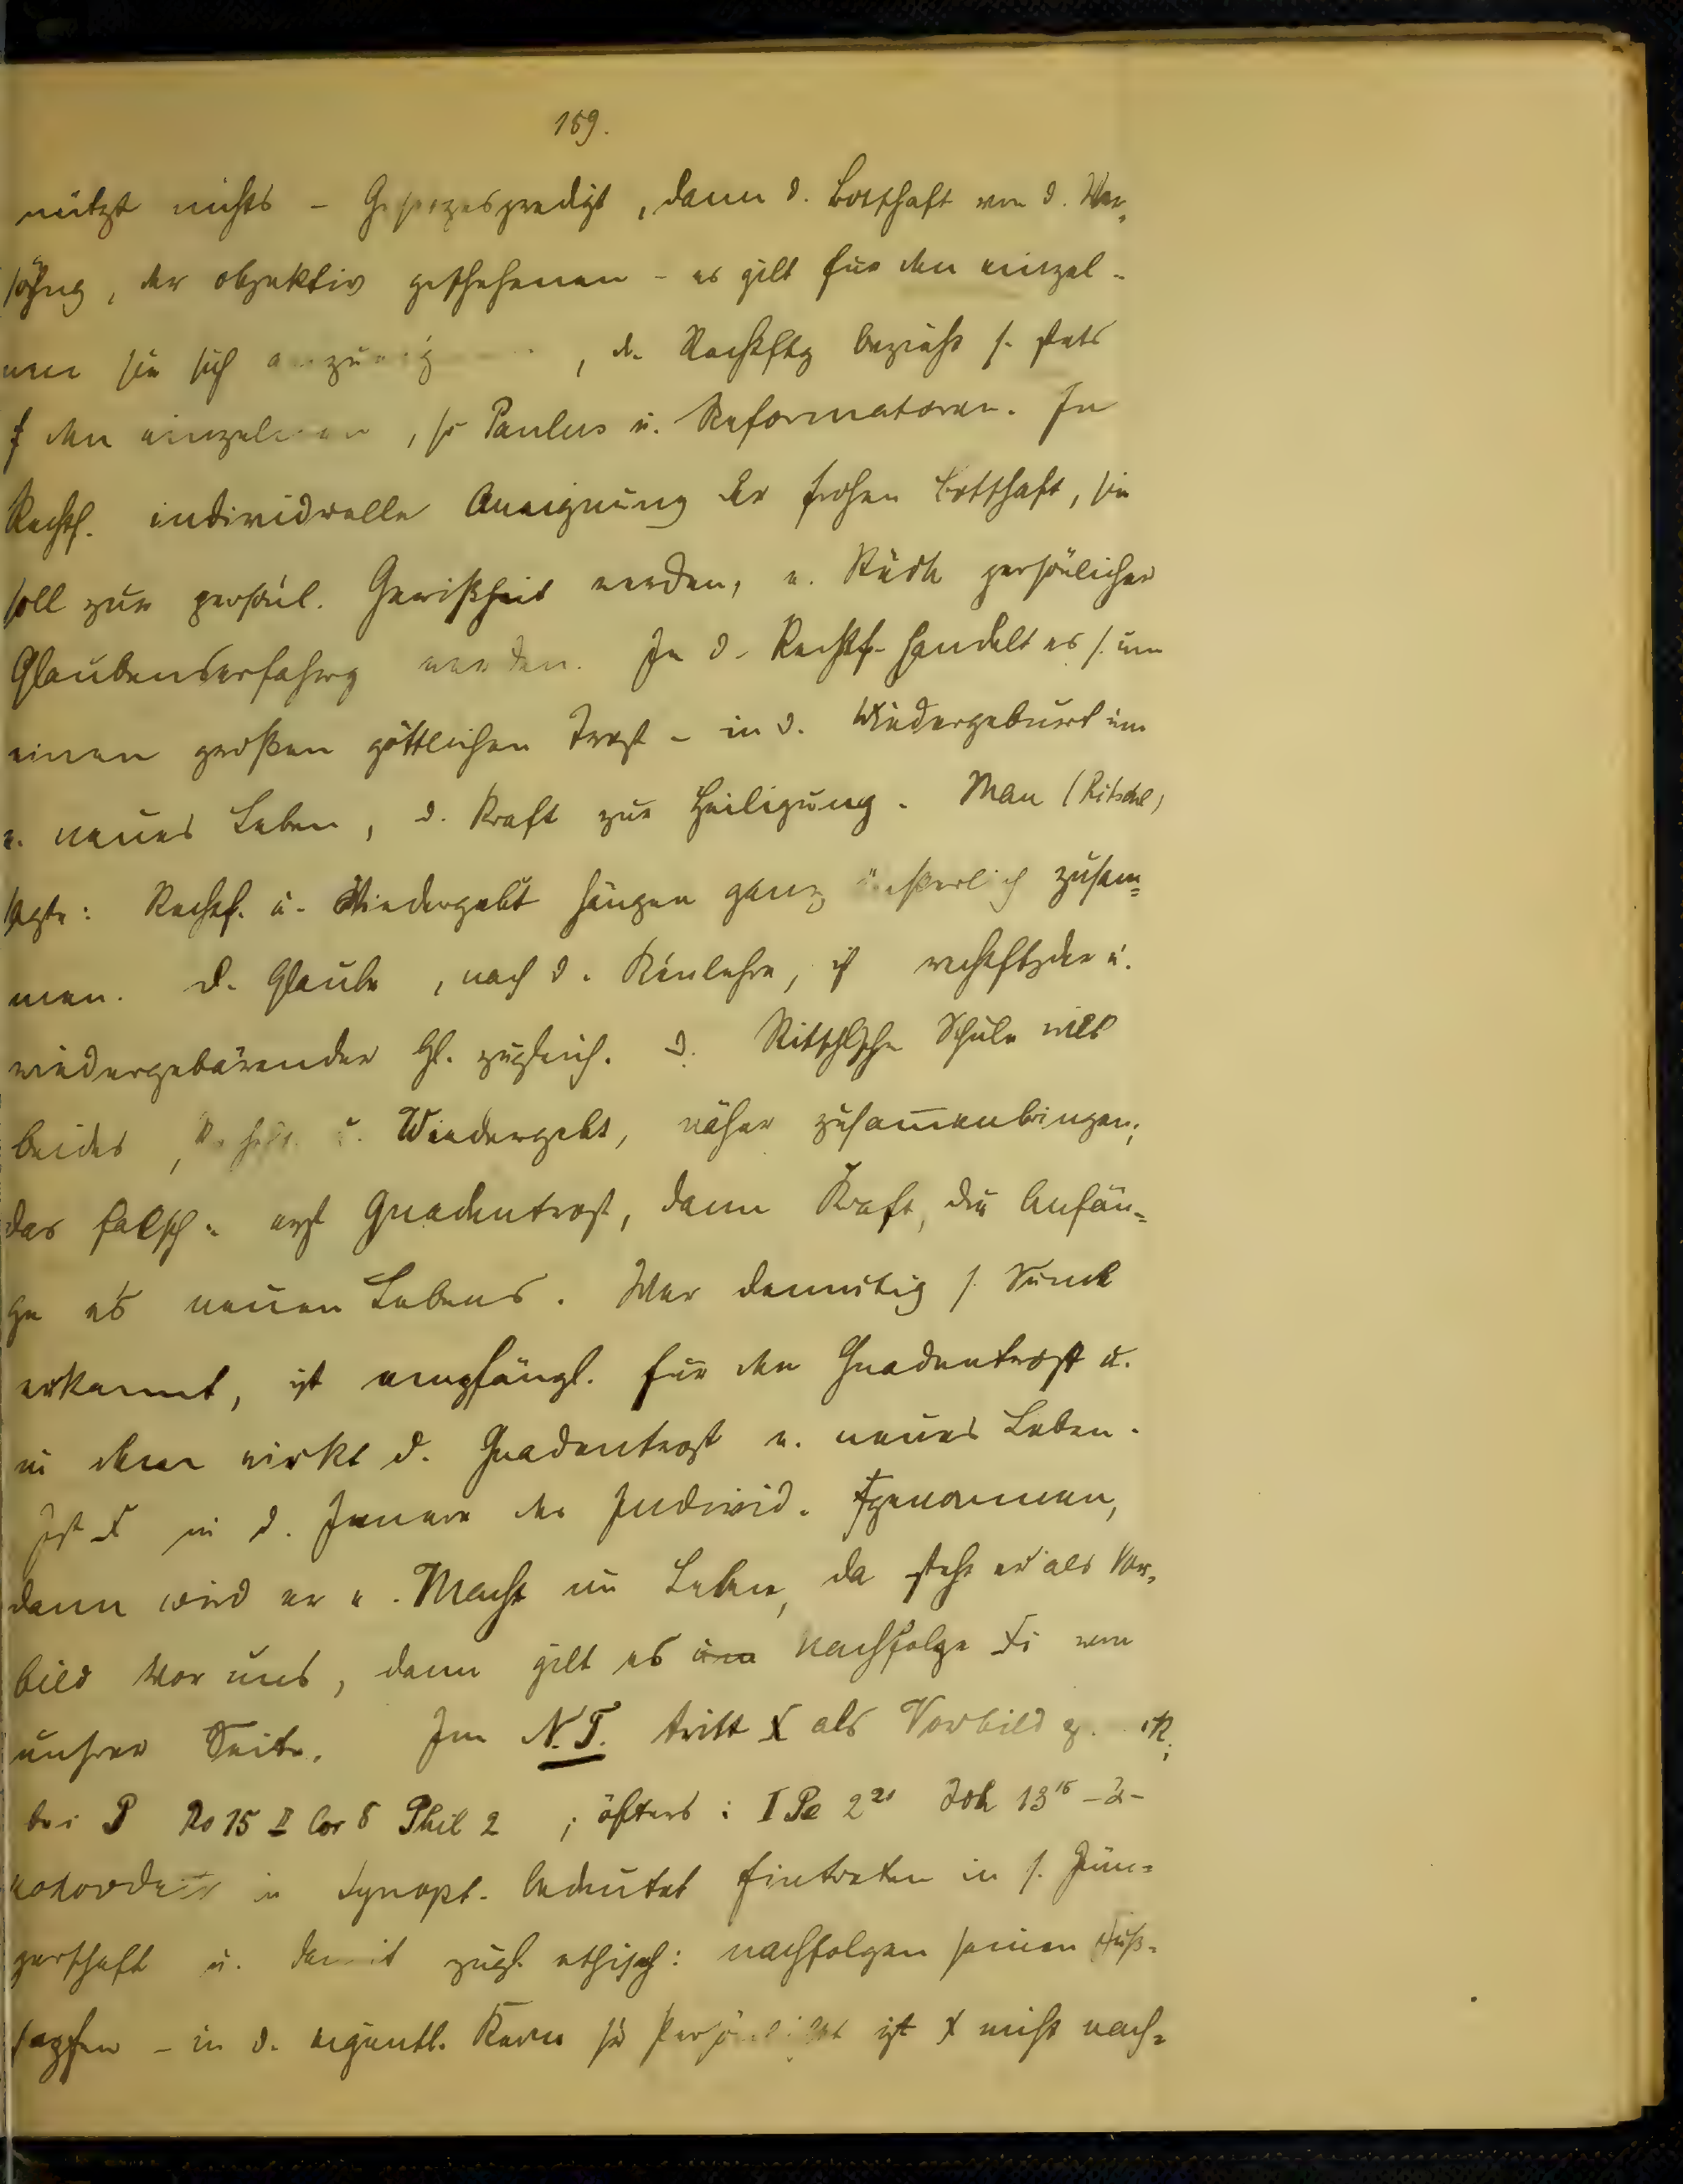 189.
nützt nichts – Gesetzespredigt, dann d. Botschaft von d. Ver-
söhng, der objektiv geschehenen – es gilt für den einzel-
nen sie sich anzueig , d. Rechtftg bezieht s. stets
f den einzelnen, so Paulus u. Reformatoren. In
Rechtf. individuelle Aneignung der frohen Botschaft, sie
soll zur persönl. Gewißheit werden, e. Stück persönlicher
Glaubenserfahrg werden. In d. Rechtf. handelt es s. um
einen großen göttlichen Trost – in d. Wiedergeburt um
e. neues Leben, d. Kraft zur Heiligung. Man (Ritschl)
sagte: Rechtf. u. Wiedergebt hängen ganz äußerlich zusam-
men. D. Glaube, nach d. Kirlehre, ist rechtftgder u.
wiedergebärender Gl. zugleich. D. Ritschlsche Schule will
beides, Rechtf. u. Wiedergebt, näher zusam̅enbringen;
das falsch: erst Gnadentrost, dann Kraft, die Anfän-
ge es neuen Lebens. Wer demütig s. Sünde
erkannt, ist empfängl. für den Gnadentrost u.
in dem wirkt d. Gnadentrost e. neues Leben.
Ist X in d. Innere des Individ. fgenommen,
dann wird er e. Macht im Leben, da steht er als Vor-
bild vor uns, dann gilt es Nachfolge Xi von
unsrer Seite. Im N.T. tritt X als Vorbild
bei P Ro 15 II Cor 8 Phil 2 ; öfters: I Pe 2 21 Joh 13 15
in Synopt. bedeutet Eintreten in s. Jün-
gerschaft u. damit zugl. ethisch: nachfolgen seinen Fuß-
tapfen – in d. eigentl. Kern sr Persönlichkt ist X nicht nach-